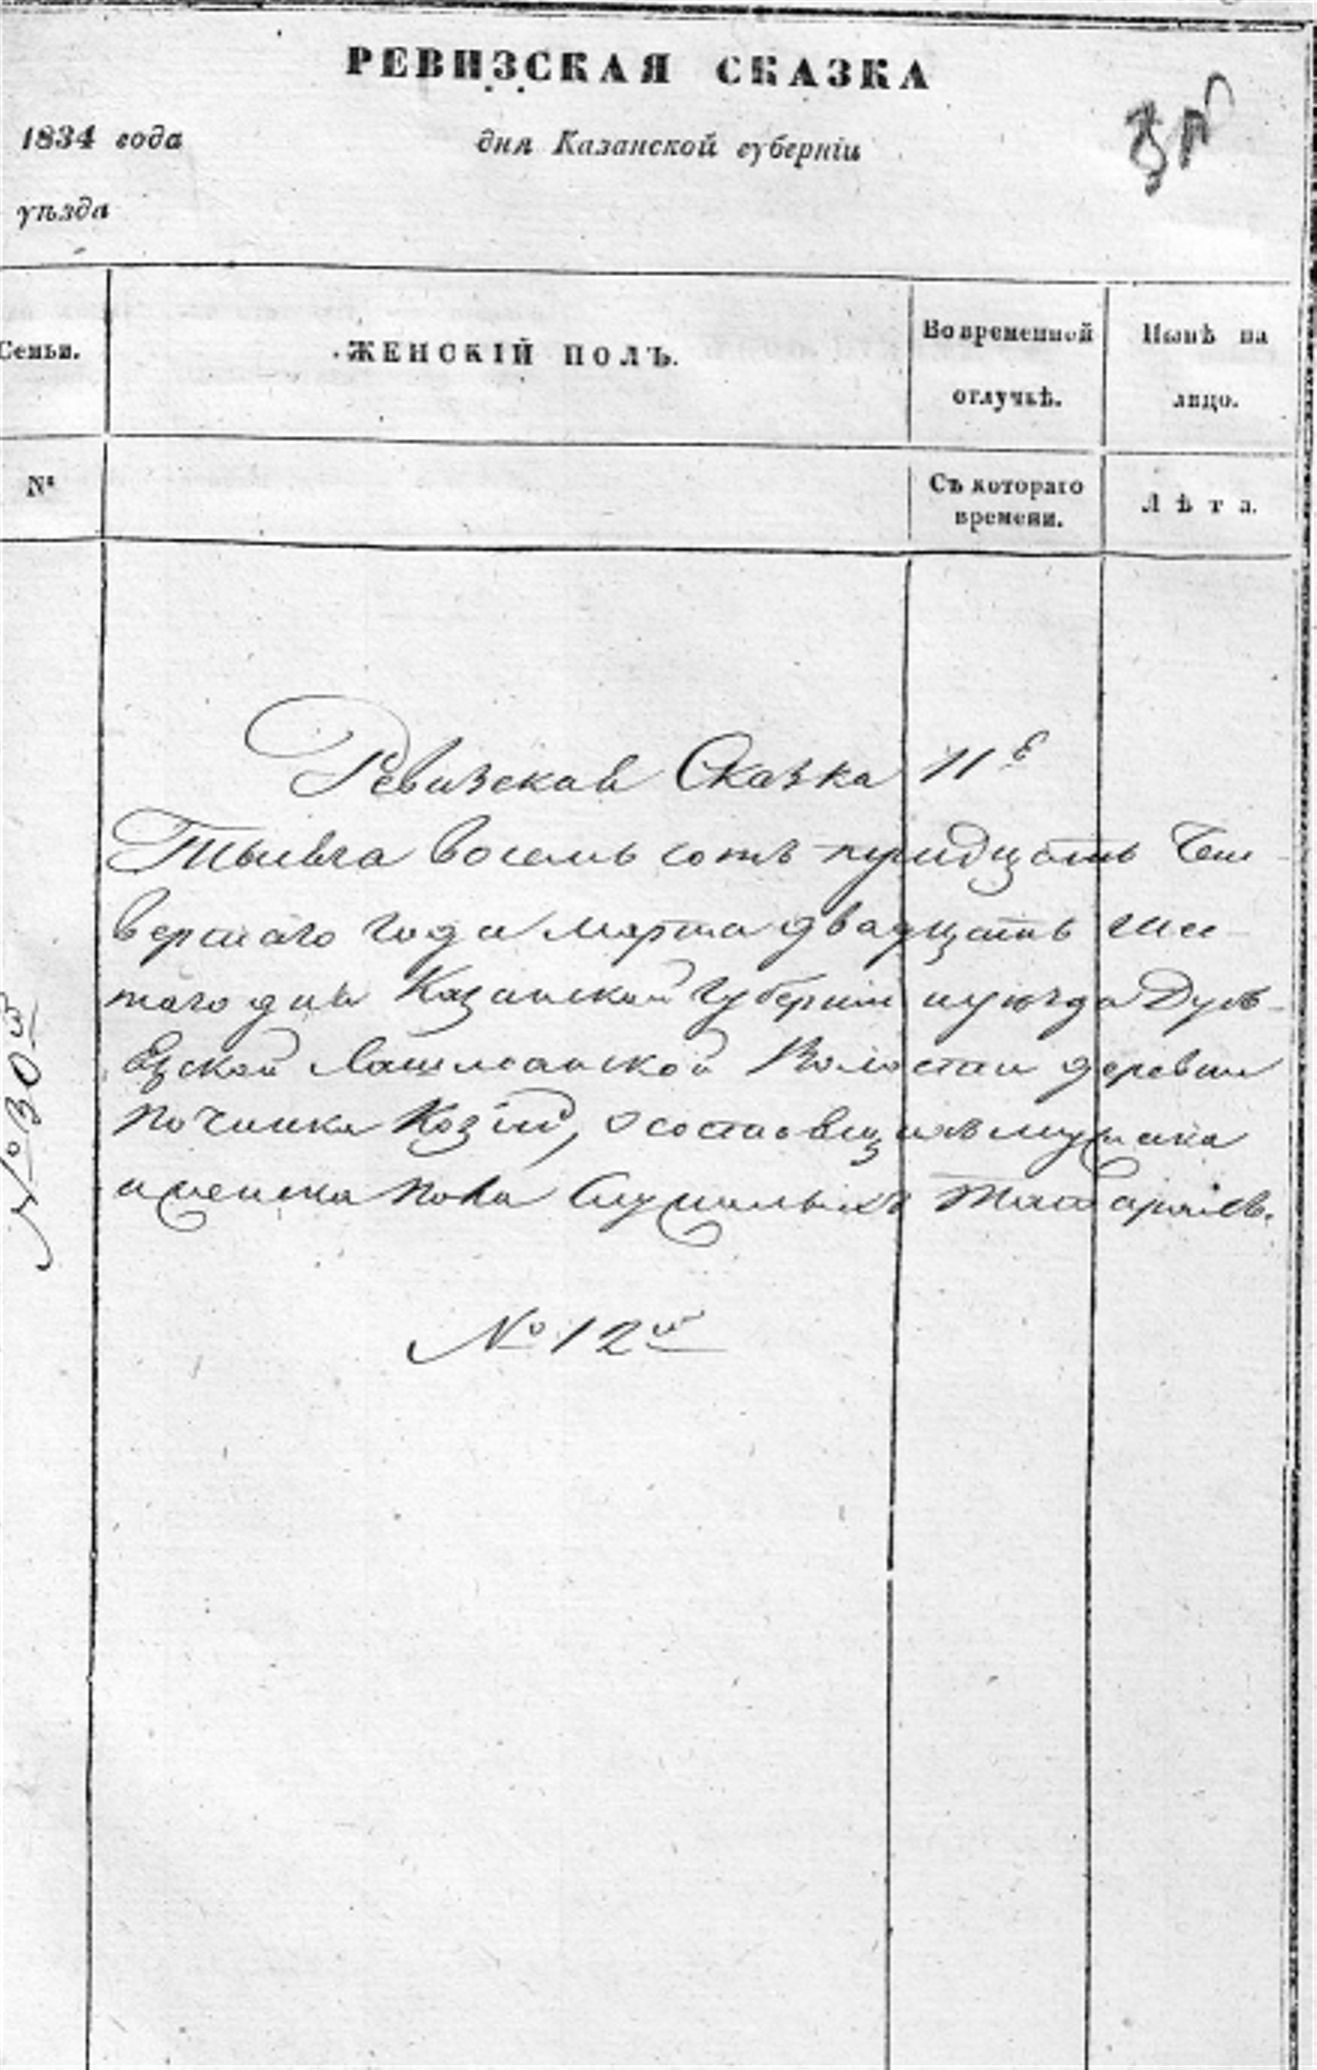 РЕВИЗСКАЯ СКАЗКА
1834 года дня Казанской губерніи
уѣзда
Семьи. ЖЕНСКІЙ ПОЛЪ. Во временной Нынѣ на
отлучкѣ. лицо.
№ Съ котораго Лѣта.
времени.
Ревизская Сказка
Тысяча восемь сотъ тридцать Чет-
вертаго года марта двадцать шес-
таго дня Казанской Губерніи и уѣзда
Волости деревни
починка о состоящихъ мужска
и женска пола Служилыхъ Татарахъ.
№ 12й
№ 30й